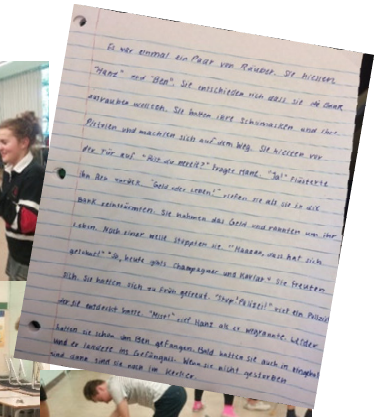 Es war einmal ein Paar von Räuber. Sie hiessen
"Hans" und "Ben". Sie entschieden sich dass sie die Bank
ausrauben wollten. Sie hatten ihre Schimasken und ihre
Pistolen und machten sich auf dem Weg. Sie vor
der Tür auf "Bist du bereit?" fragte Hans. "Ja!" flüsterte
ihn Ben zurück. "Geld oder Leben!" riefen sie als sie in die
Bank reinstürmten. Sie nahmen das Geld und rannten um ihr
Leben. Nach einer weile stoppten sie. "Haaaa, was hat sich
gelohnt!" "Ja, heute gibts Champagner und Kaviar." Sie freuten
sich. Sie hatten sich zu früh gefreut. "Stop! Polizei!" rief ein Polizist
der sie entdeckt hatte. "Mist!" rief Hans als er wegrannte. Leider
hatten sie schon Ben gefangen. Bald hatten sie auch in
Und er ins Gefängnis. Wenn sie nicht gestorben
sind dann sind sie noch im Kerker.